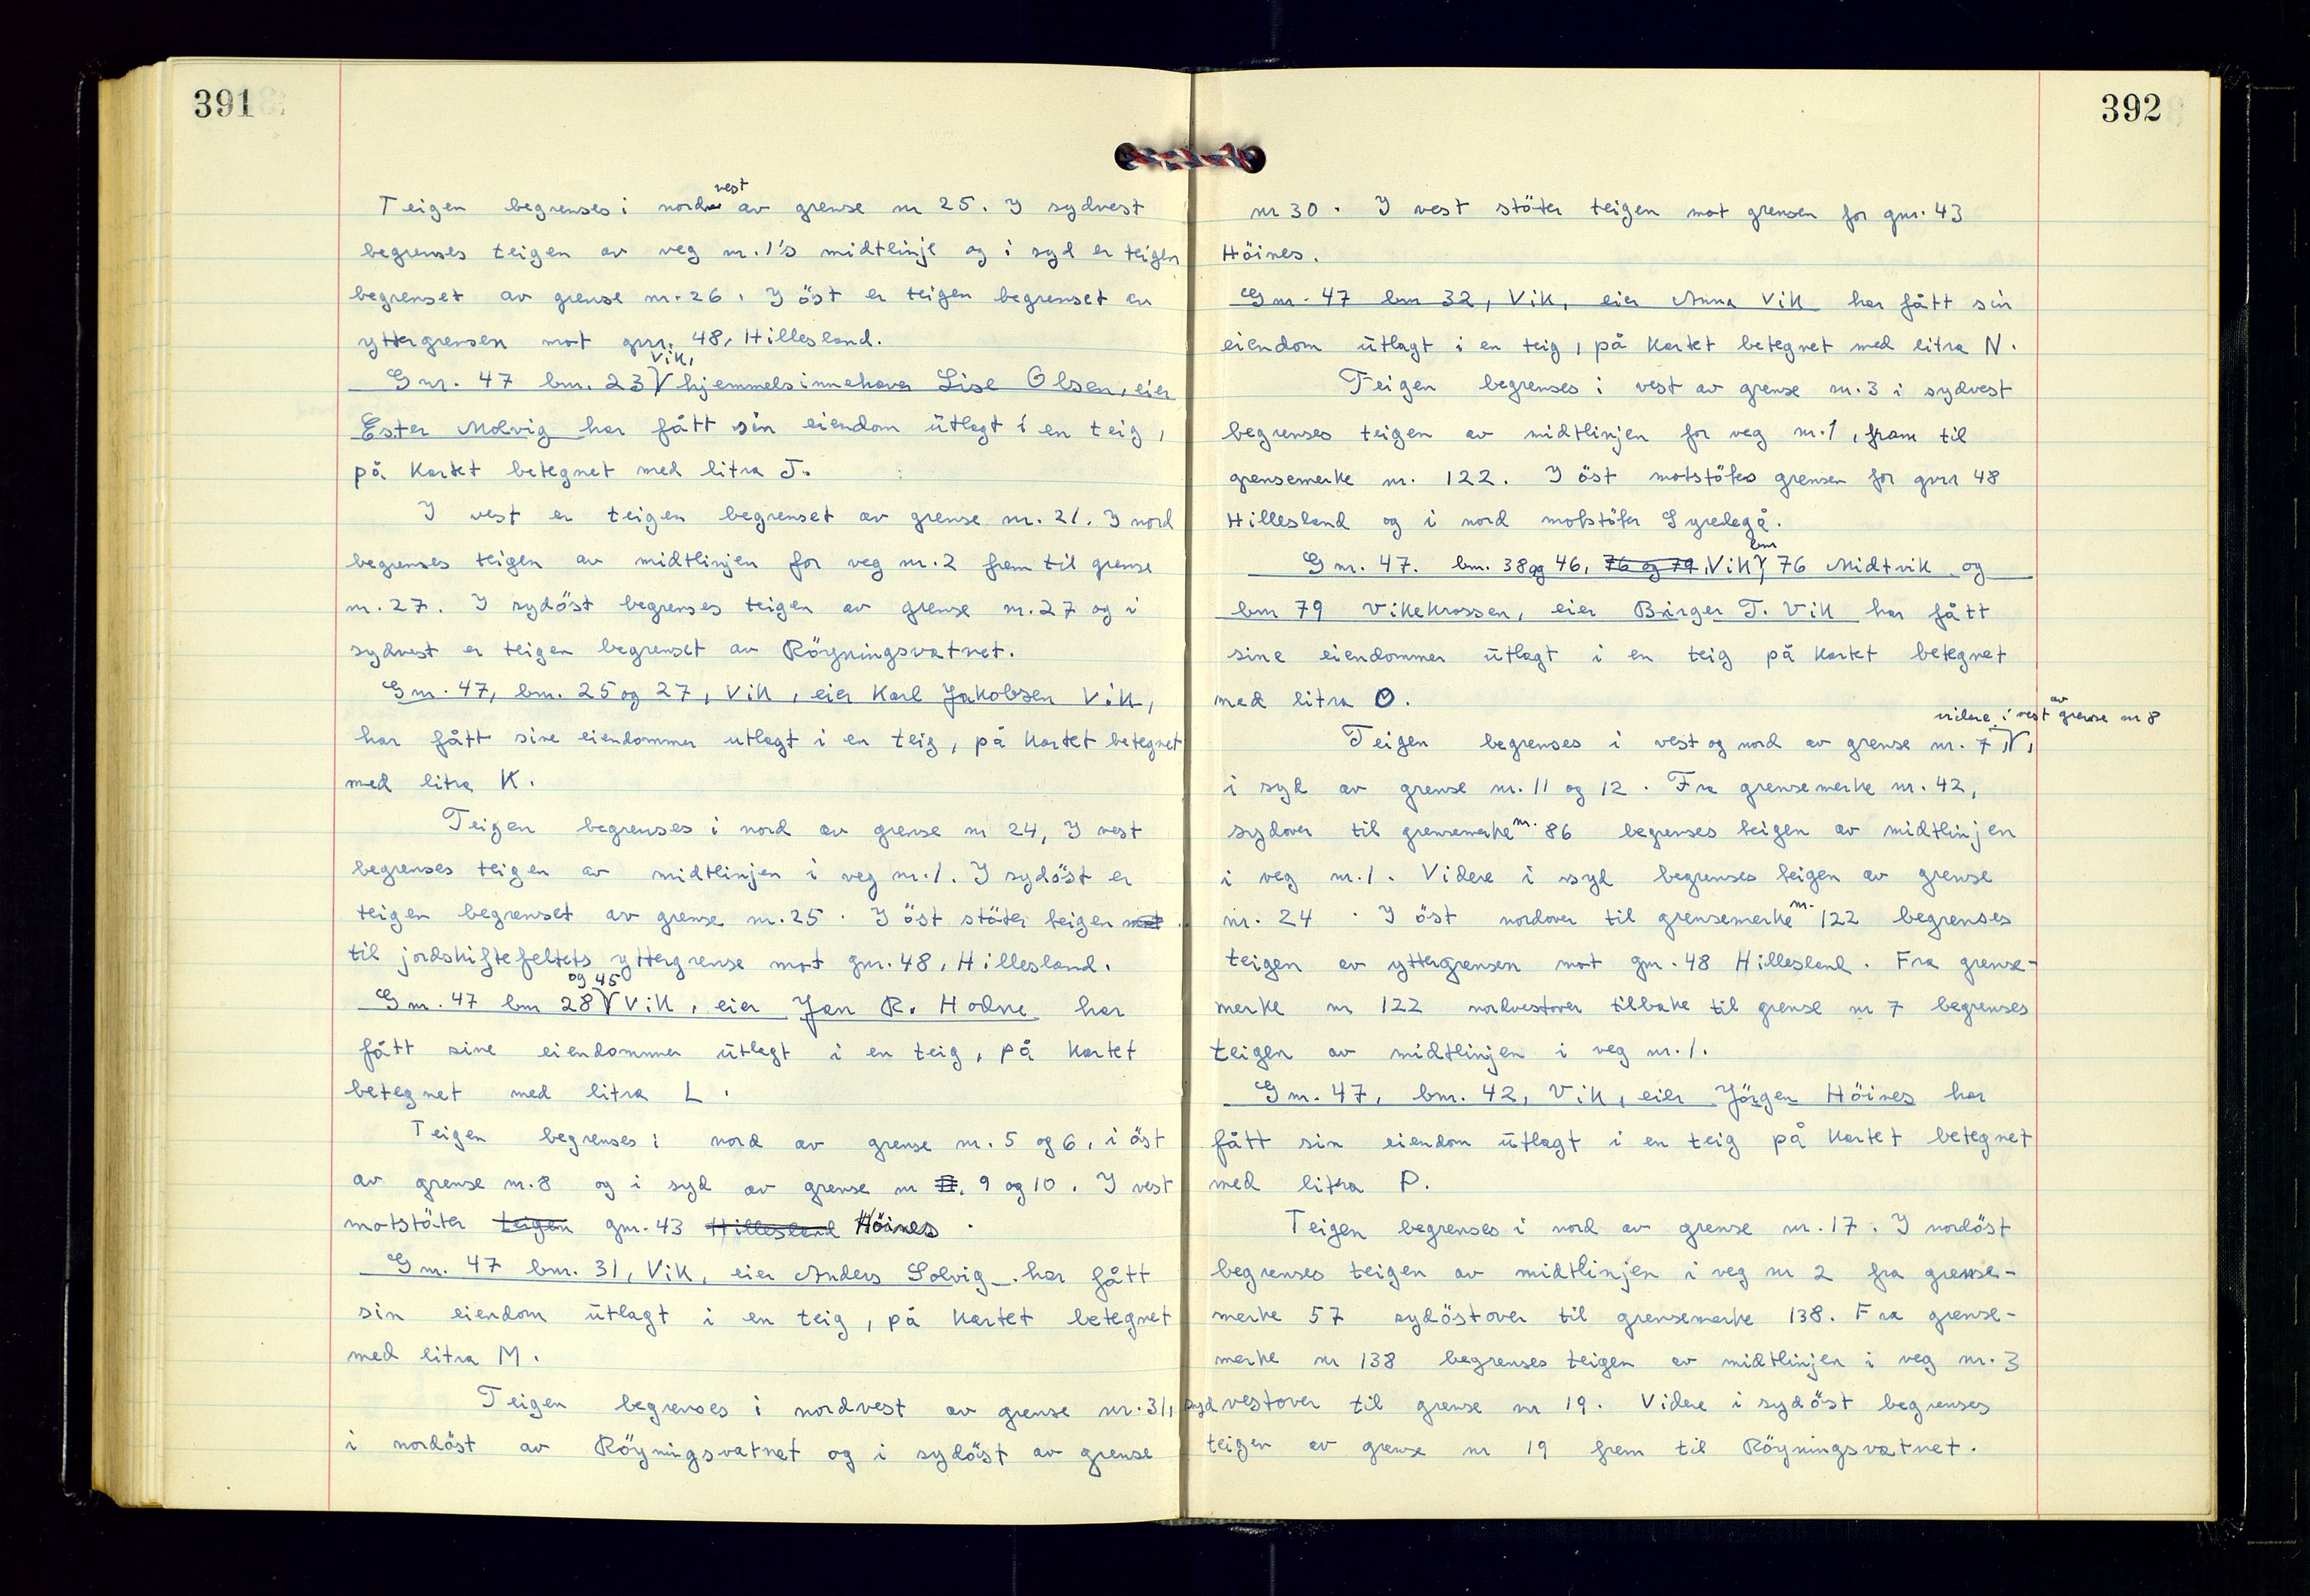 391
Teigen begrenses i nordvest av grense nr 25. I sydvest
begrenses teigen av veg nr. 1's midtlinje og i syd er teigen
begrenset av grense nr. 26. I öst er teigen begrenset av
yttergrensen mot gnr. 48, Hillesland.
Gnr. 47 bnr. 23 Vik, hjemmelsinnehaver Lise Olsen, eier
Ester Molvig har fått sin eiendom utlagt i en teig,
på kartet betegnet med litra J.
I vest er teigen begrenset av grense nr. 21. I nord
begrenses teigen av midtlinjen for veg nr. 2 frem til grense
nr. 27. I sydöst begrenses teigen av grense nr. 27 og i
sydvest er teigen begrenset av Röyningsvatnet.
Gnr. 47, bnr. 25 og 27, Vik, eier Karl Jakobsen Vik,
har fått sine eiendommer utlagt i en teig, på kartet betegnet
med litra K.
Teigen begrenses i nord av grense nr 24, I vest
begrenses teigen av midtlinjen i veg nr. 1. I sydöst er
teigen begrenset av grense nr. 25. I öst stöter teigen mot
til jordskiftefeltets yttergrense mot gnr. 48, Hillesland.
Gnr. 47 bnr 28 og 45 Vik, eier Jan R. Hodne har
fått sine eiendommer utlagt i en teig, på kartet
betegnet med litra L.
Teigen begrenses i nord av grense nr. 5 og 6, i öst
av grense nr. 8 og i syd av grense nr 9 og 10. I vest
motstöter teigen gnr. 43 Hillesland Höines.
Gnr. 47 bnr. 31, Vik, eier Anders Solvig har fått
sin eiendom utlagt i en teig, på kartet betegnet
med litra M.
Teigen begrenses i nordvest av grense nr. 31,
i nordöst av Röyningsvatnet og i sydöst av grense
392
nr 30. I vest stöter teigen mot grensen for gnr. 43
Höines.
Gnr. 47 bnr 32, Vik, eier Anna Vik har fått sin
eiendom utlagt i en teig, på kartet betegnet med litra N.
Teigen begrenses i vest av grense nr. 3 i sydvest
begrenses teigen av midtlinjen for veg nr. 1, fram til
grensemerke nr. 122. I öst motstötes grensen for gnr 48
Hillesland og i nord motstöter Syredegå.
Gnr. 47. bnr. 38 og 46, 76 og 79, Vik, bnr 76 Midtvik og
bnr 79 Vikekrossen, eier Birger T. Vik har fått
sine eiendommer utlagt i en teig på kartet betegnet
med litra O.
Teigen begrenses i vest og nord av grense nr. 7, videre i vest av grense nr 8,
i syd av grense nr. 11 og 12. Fra grensemerke nr. 42,
sydover til grensemerke nr. 86 begrenses teigen av midtlinjen
i veg nr. 1. Videre i syd begrenses teigen av grense
nr. 24. I öst nordover til grensemerke nr. 122 begrenses
teigen av yttergrensen mot gnr. 48 Hillesland. Fra grense-
merke nr 122 nordvestover tilbake til grense nr 7 begrenses
teigen av midtlinjen i veg nr. 1.
Gnr. 47, bnr. 42, Vik, eier Jörgen Höines har
fått sin eiendom utlagt i en teig på kartet betegnet
med litra P.
Teigen begrenses i nord av grense nr. 17. I nordöst
begrenses teigen av midtlinjen i veg nr 2 fra grense-
merke 57 sydöstover til grensemerke 138. Fra grense-
merke nr 138 begrenses teigen av midtlinjen i veg nr. 3
sydvestover til grense nr 19. Videre i sydöst begrenses
teigen av grense nr 19 frem til Röyningsvatnet.